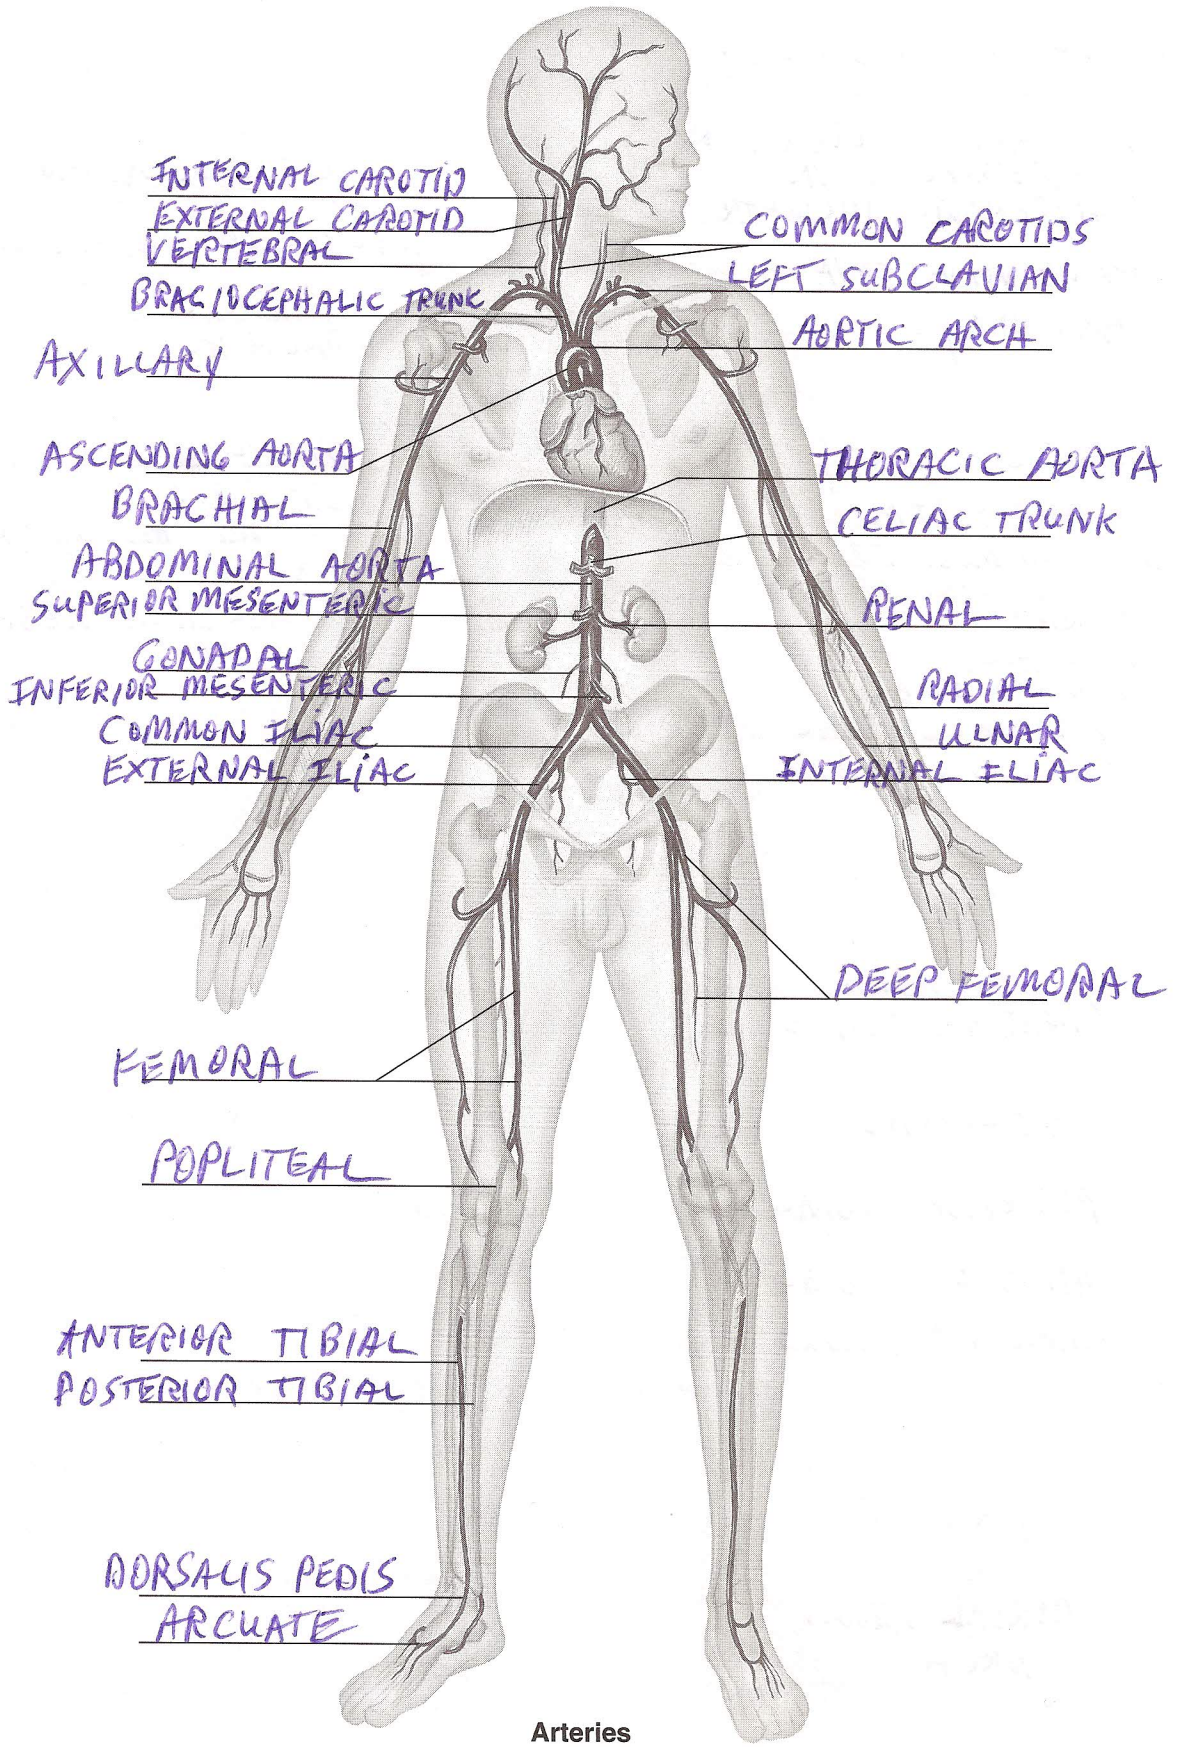 INTERNAL CAROTID
EXTERNAL CAROTID
VERTEBRAL
BRACIOCEPHALIC TRUNK
AXILLARY
ASCENDING AORTA
BRACHIAL
ABDOMINAL AORTA
SUPERIOR MESENTERIC
GONADAL
INFERIOR MESENTERIC
COMMON ILIAC
EXTERNAL ILIAC
FEMORAL
POPLITEAL
ANTERIOR TIBIAL
POSTERIOR TIBIAL
DORSALIS PEDIS
ARCUATE
COMMON CAROTIDS
LEFT SUBCLAVIAN
AORTIC ARCH
THORACIC AORTA
CELIAC TRUNK
RENAL
RADIAL
ULNAR
INTERNAL ILIAC
DEEP FEMORAL
Arteries